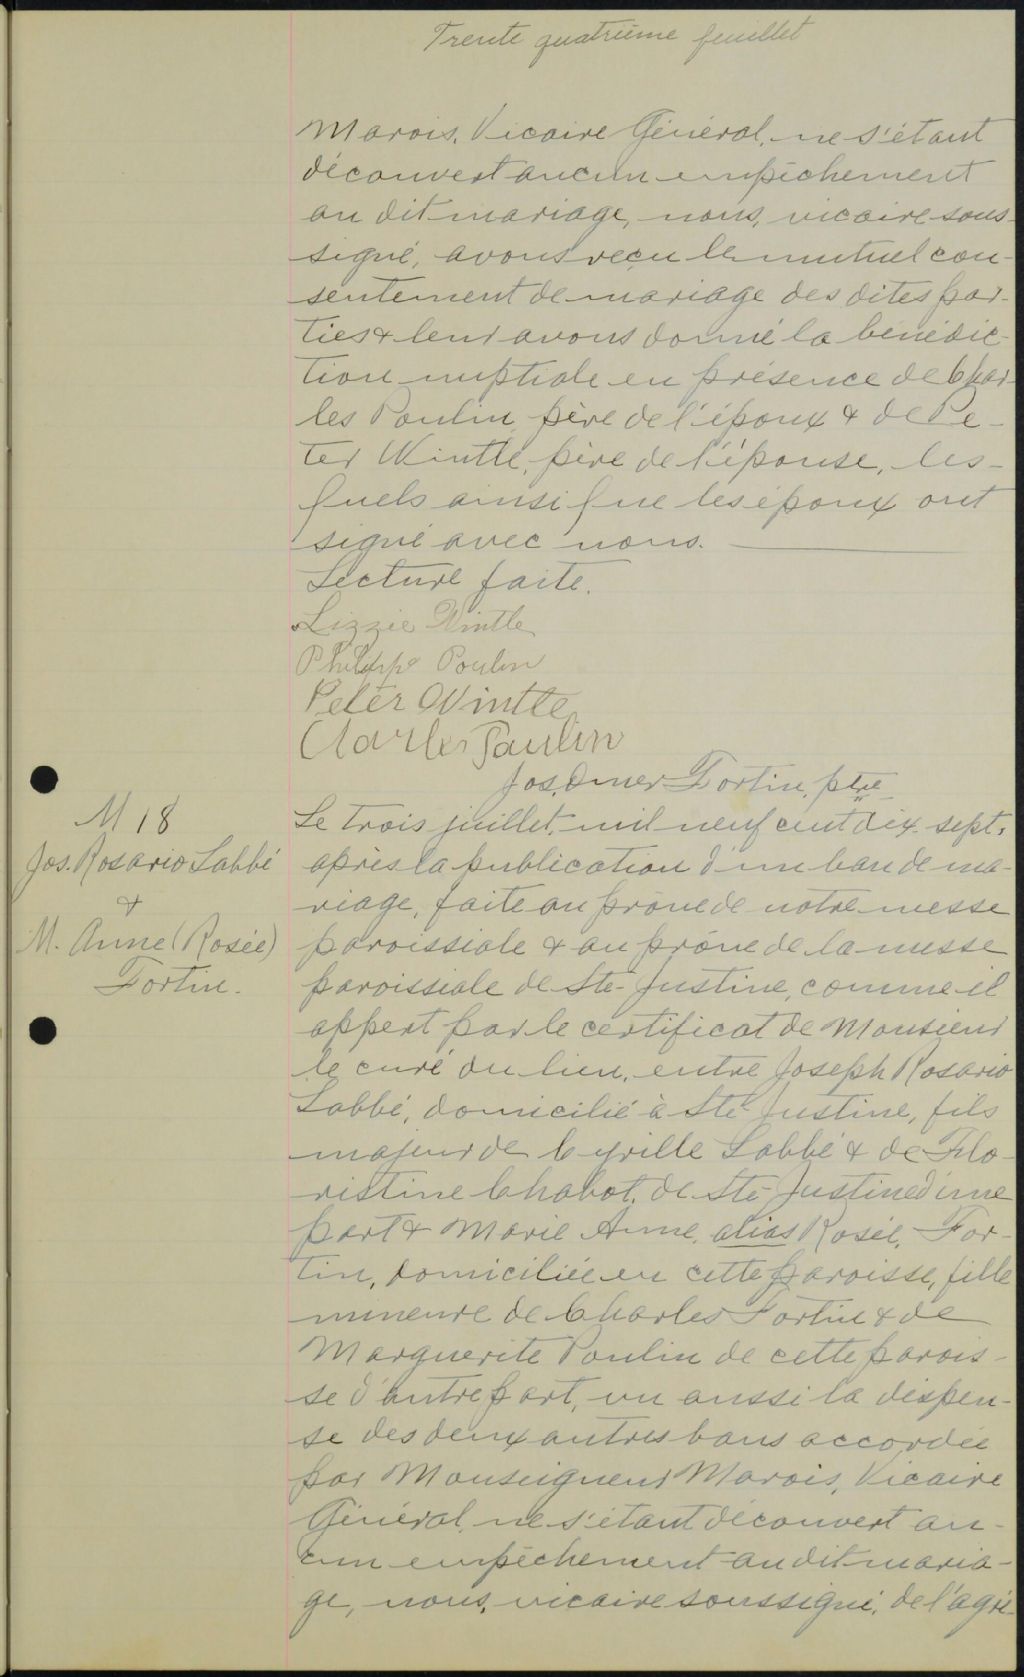 Trente quatrième feuillet
Marois, Vicaire Général, ne s'étant
découvert aucun empêchement
au dit mariage, nous, vicaire sous-
signé, avons reçu le mutuel con-
sentement de mariage des dites par-
ties & leur avons donné la bénédic-
tion nuptiale en présence de Char-
les Poulin, père de l'époux & de Pe-
ter Wintle, père de l'épouse, les-
quels ainsi que les époux ont
signé avec nous.
Lecture faite.
Lizzie Wintle
Philippe Poulin
Peter Wintle
Charles Paulin
Jos. Omer Fortin, ptre
M 18
Jos. Rosario Labbé
&
M. Anne (Rosée)
Fortin.
Le trois juillet, mil neuf cent dix-sept,
après la publication d'un ban de ma-
riage, faite au prône de notre messe
paroissiale & au prône de la messe
paroissiale de Ste-Justine, comme il
appert par le certificat de Monsieur
le curé du lieu, entre Joseph Rosario
Labbé, domicilié à Ste-Justine, fils
majeur de Cyrille Labbé & de Flo-
ristine Chabot, de Ste-Justine d'une
part & Marie Anne, alias Rosée, For-
tin, domiciliée en cette paroisse, fille
mineure de Charles Fortin & de
Marguerite Poulin de cette parois-
se d'autre part, vu aussi la dispen-
se des deux autres bans accordée
par Monseigneur Marois, Vicaire
Général, ne s'étant découvert au-
cun empêchement au dit maria-
ge, nous, vicaire soussigné, de l'agré-